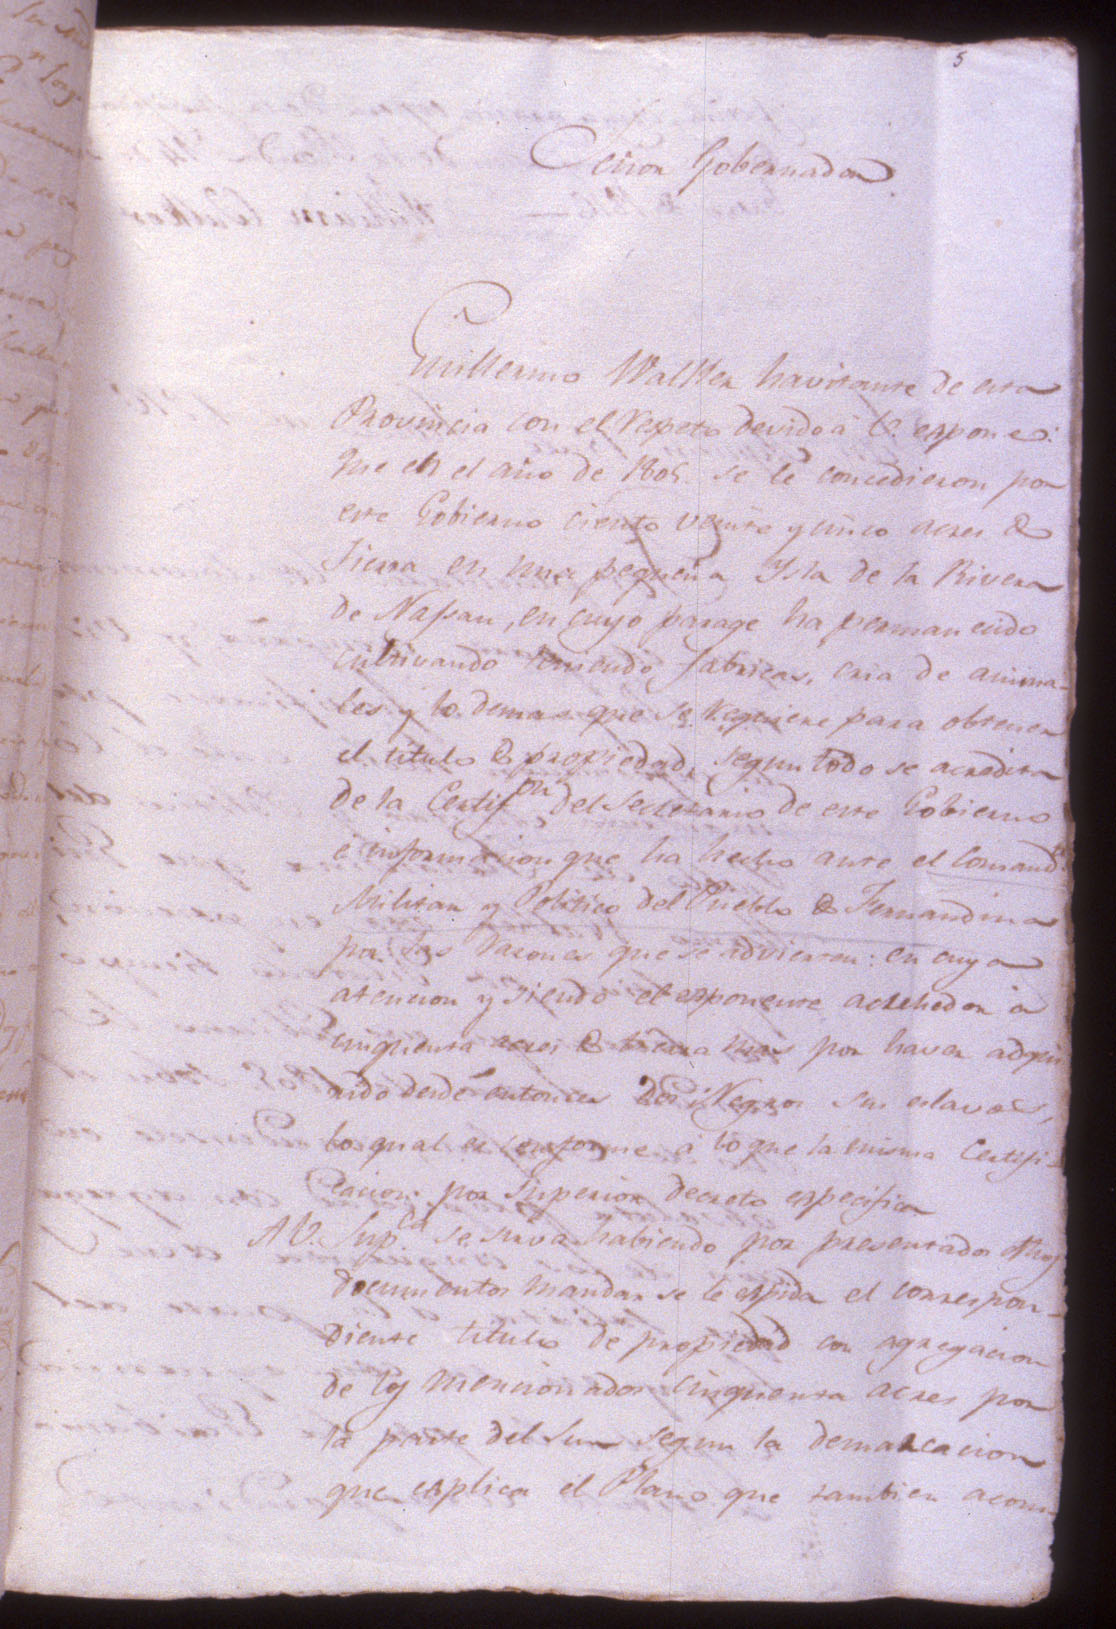 5
Señor Gobernador
Guillermo Walker havitante de esta
Provincia con el Respeto devido á V. expone:
Que en el año de 1805. se le concedieron por
este Gobierno ciento veinte y cinco acres de
tierra en una pequeña Isla de la Rivera
de Nassau, en cuyo parage ha permanecido
cultivando teniendo fabricas, cria de anima-
les y lo demas que se Requiere para obtener
el titulo de propiedad, segun todo se acredita
de la Certif.on del Secretario de este Gobierno
é informacion que ha hecho ante el Comand.te
Militar y Politico del Pueblo de Fernandina
por las Razones que se advierten: en cuya
atencion y siendo el exponente acrehedor á
cinquenta acres de tierra mas por haver adqui-
rido desde entonces dos Negros sus eslavos,
lo qual es conforme á lo que la misma Certifi-
cacion por Superior decreto especifica
A V. Sup.ca se sirva habiendo por presentados
documentos mandar se le espida el correspon-
diente titulo de propiedad con agregacion
de los mencionados cinquenta acres por
la parte del Sur segun la demarcacion
que explica el Plano que tambien acom-